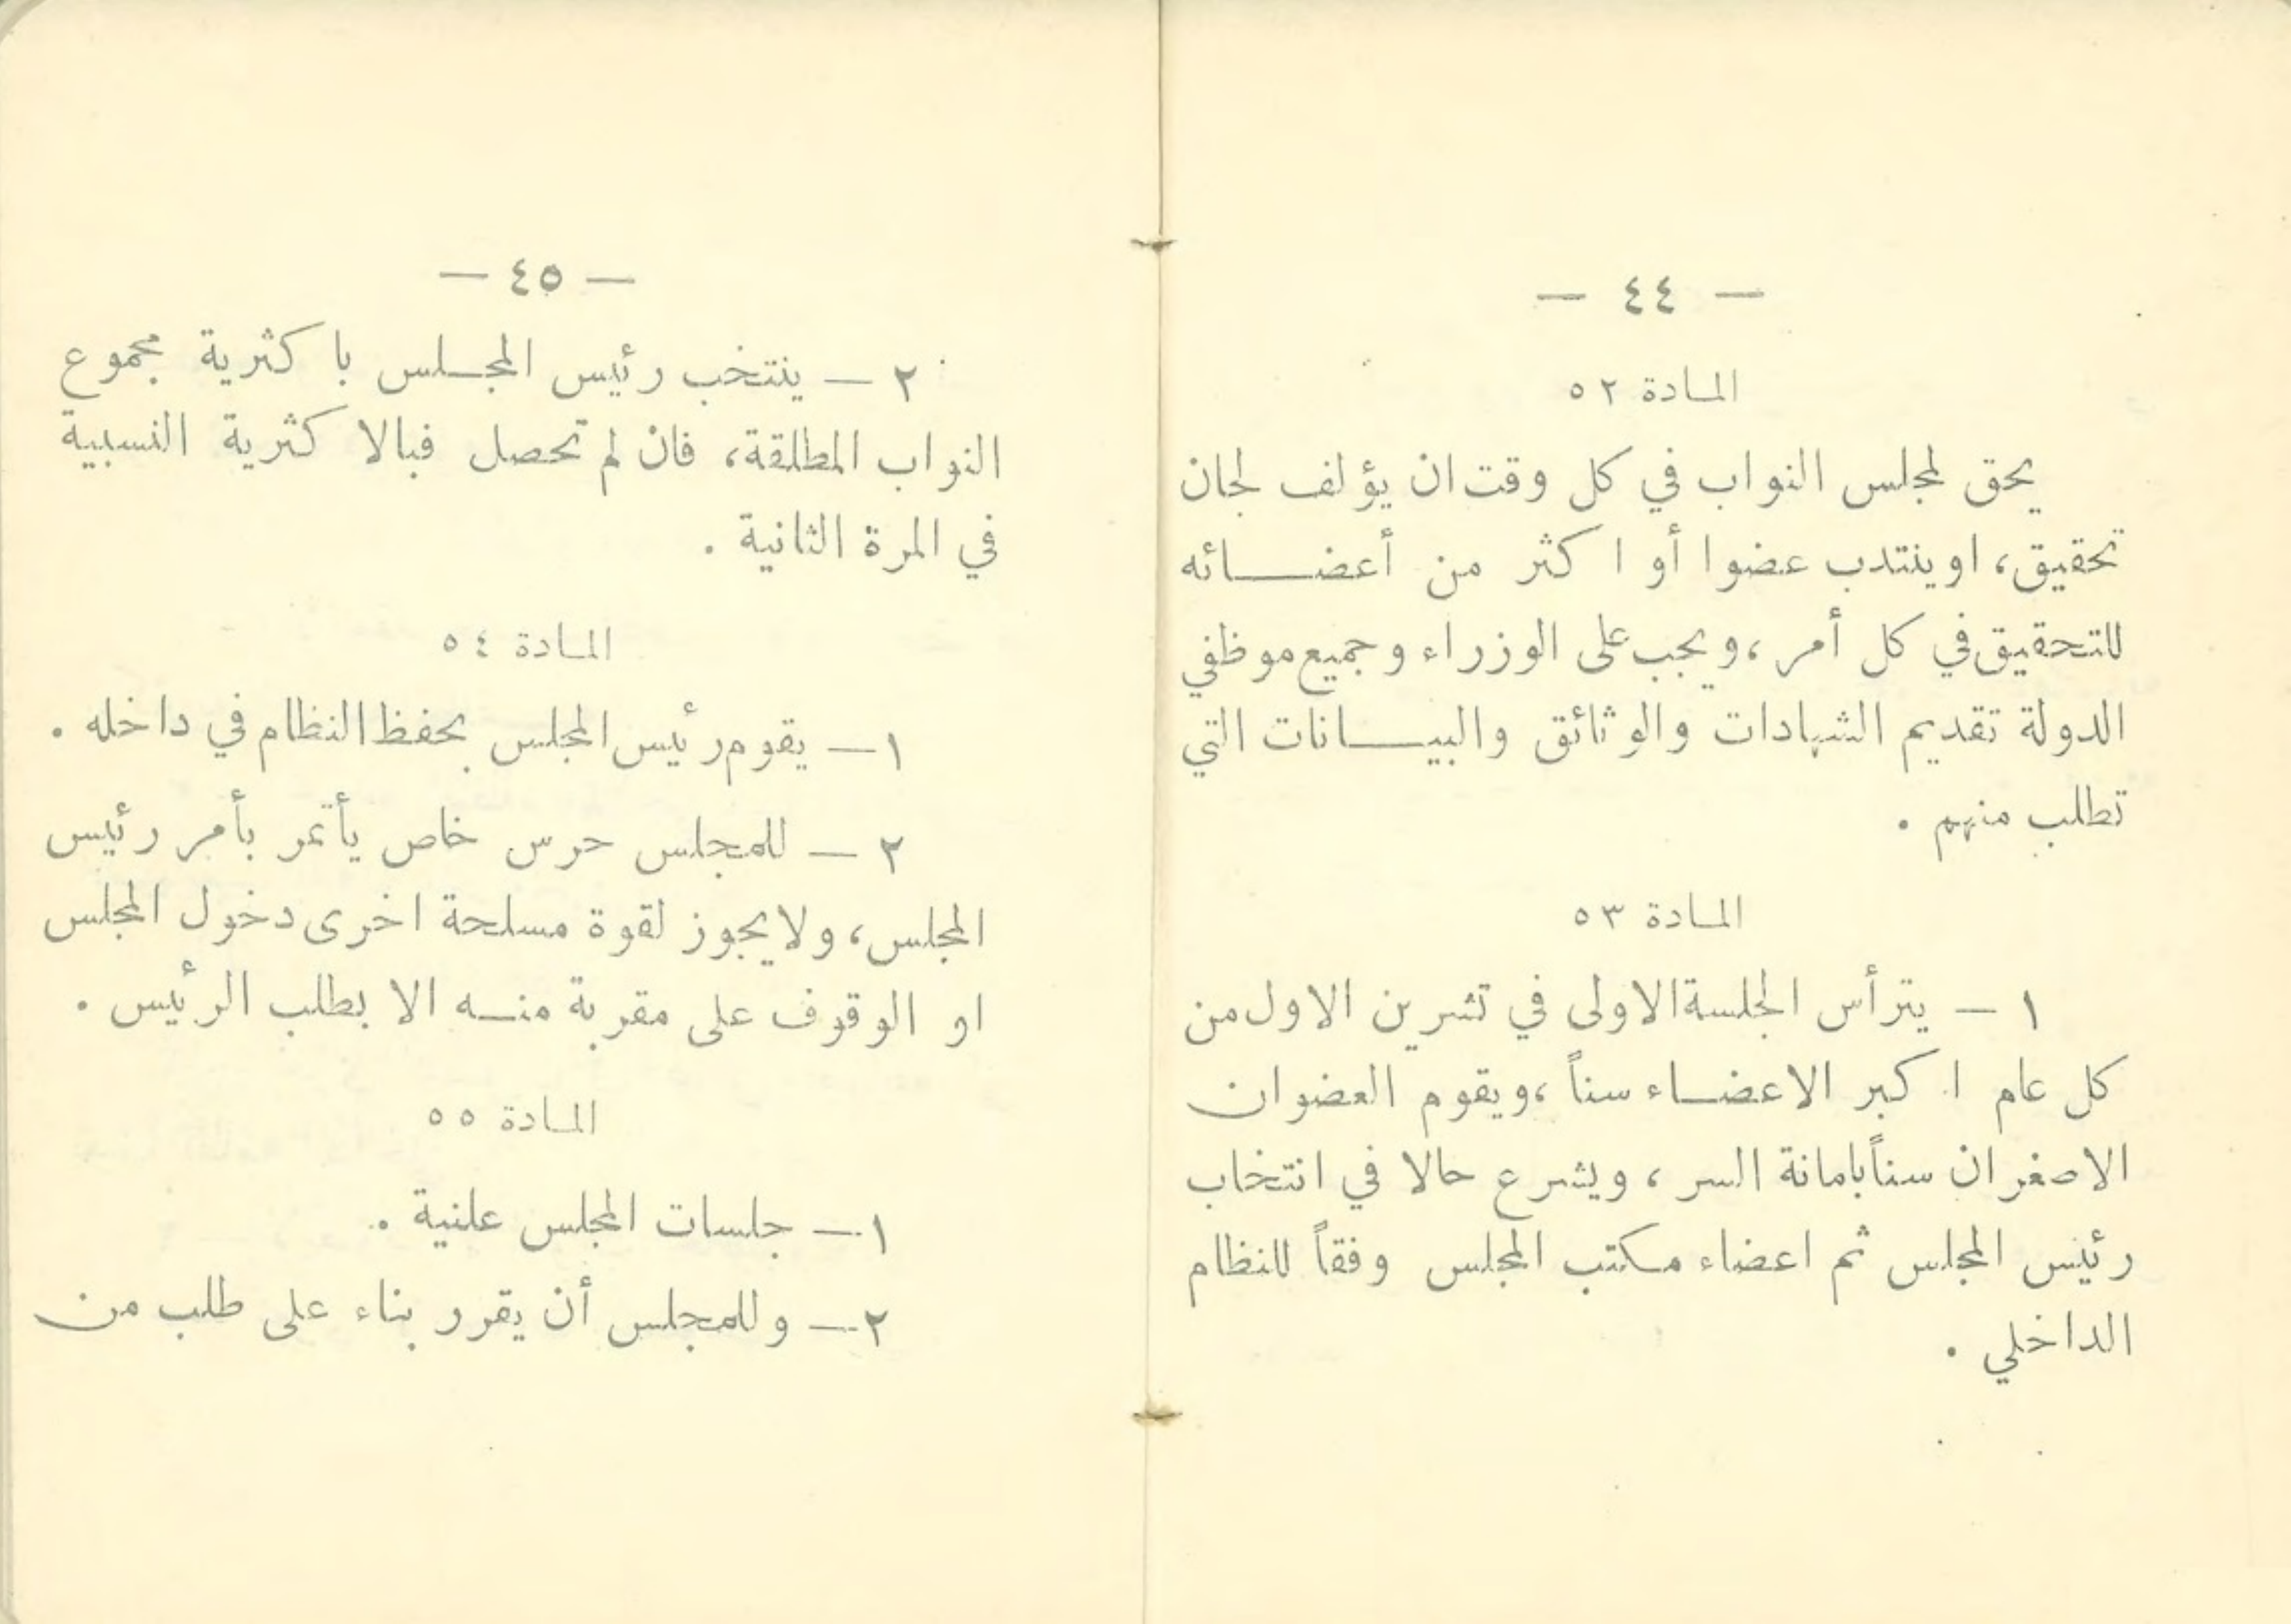 — ٤٤ —
المادة ٥٢
يحق لمجلس النواب في كل وقت ان يؤلف لجان
تحقيق، او ينتدب عضوا أو اكثر من أعضائه
للتحقيق في كل أمر، ويجب على الوزراء وجميع موظفي
الدولة تقديم الشهادات والوثائق والبيانات التي
تطلب منهم .
المادة ٥٣
١ — يترأس الجلسة الاولى في تشرين الاول من
كل عام اكبر الاعضاء سناً، ويقوم العضوان
الاصغران سناً بامانة السر، ويشرع حالا في انتخاب
رئيس المجلس ثم اعضاء مكتب المجلس وفقاً للنظام
الداخلي .
— ٤٥ —
٢ — ينتخب رئيس المجلس باكثرية مجموع
النواب المطلقة، فان لم تحصل فبالاكثرية النسبية
في المرة الثانية .
المادة ٥٤
١ — يقوم رئيس المجلس بحفظ النظام في داخله .
٢ — للمجلس حرس خاص يأتمر بأمر رئيس
المجلس، ولا يجوز لقوة مسلحة اخرى دخول المجلس
او الوقوف على مقربة منه الا بطلب الرئيس .
المادة ٥٥
١ — جلسات المجلس علنية .
٢ — وللمجلس أن يقرر بناء على طلب من